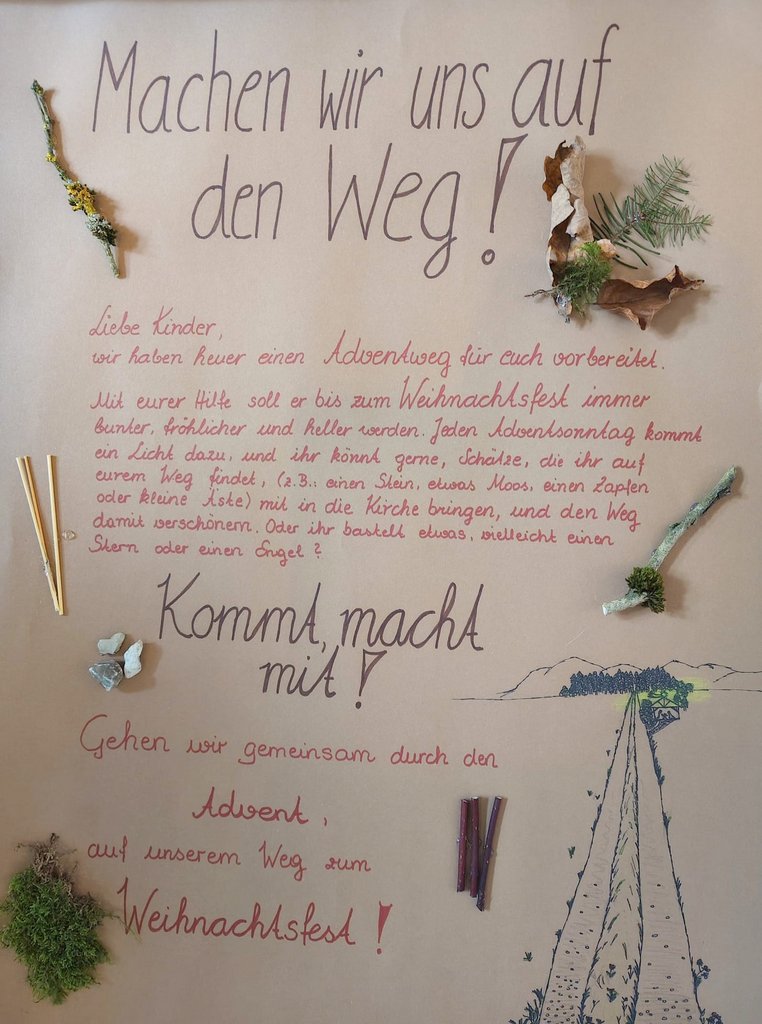 Machen wir uns auf
den Weg!
Liebe Kinder,
wir haben heuer einen Adventweg für euch vorbereitet.
Mit eurer Hilfe soll er bis zum Weihnachtsfest immer
bunter, fröhlicher und heller werden. Jeden Adventsonntag kommt
ein Licht dazu, und ihr könnt gerne, Schätze, die ihr auf
eurem Weg findet, (z.B.: einen Stein, etwas Moos, einen Zapfen
oder kleine Äste) mit in die Kirche bringen, und den Weg
damit verschönern. Oder ihr bastelt etwas, vielleicht einen
Stern oder einen Engel?
Kommt, macht
mit!
Gehen wir gemeinsam durch den
Advent,
auf unserem Weg zum
Weihnachtsfest!